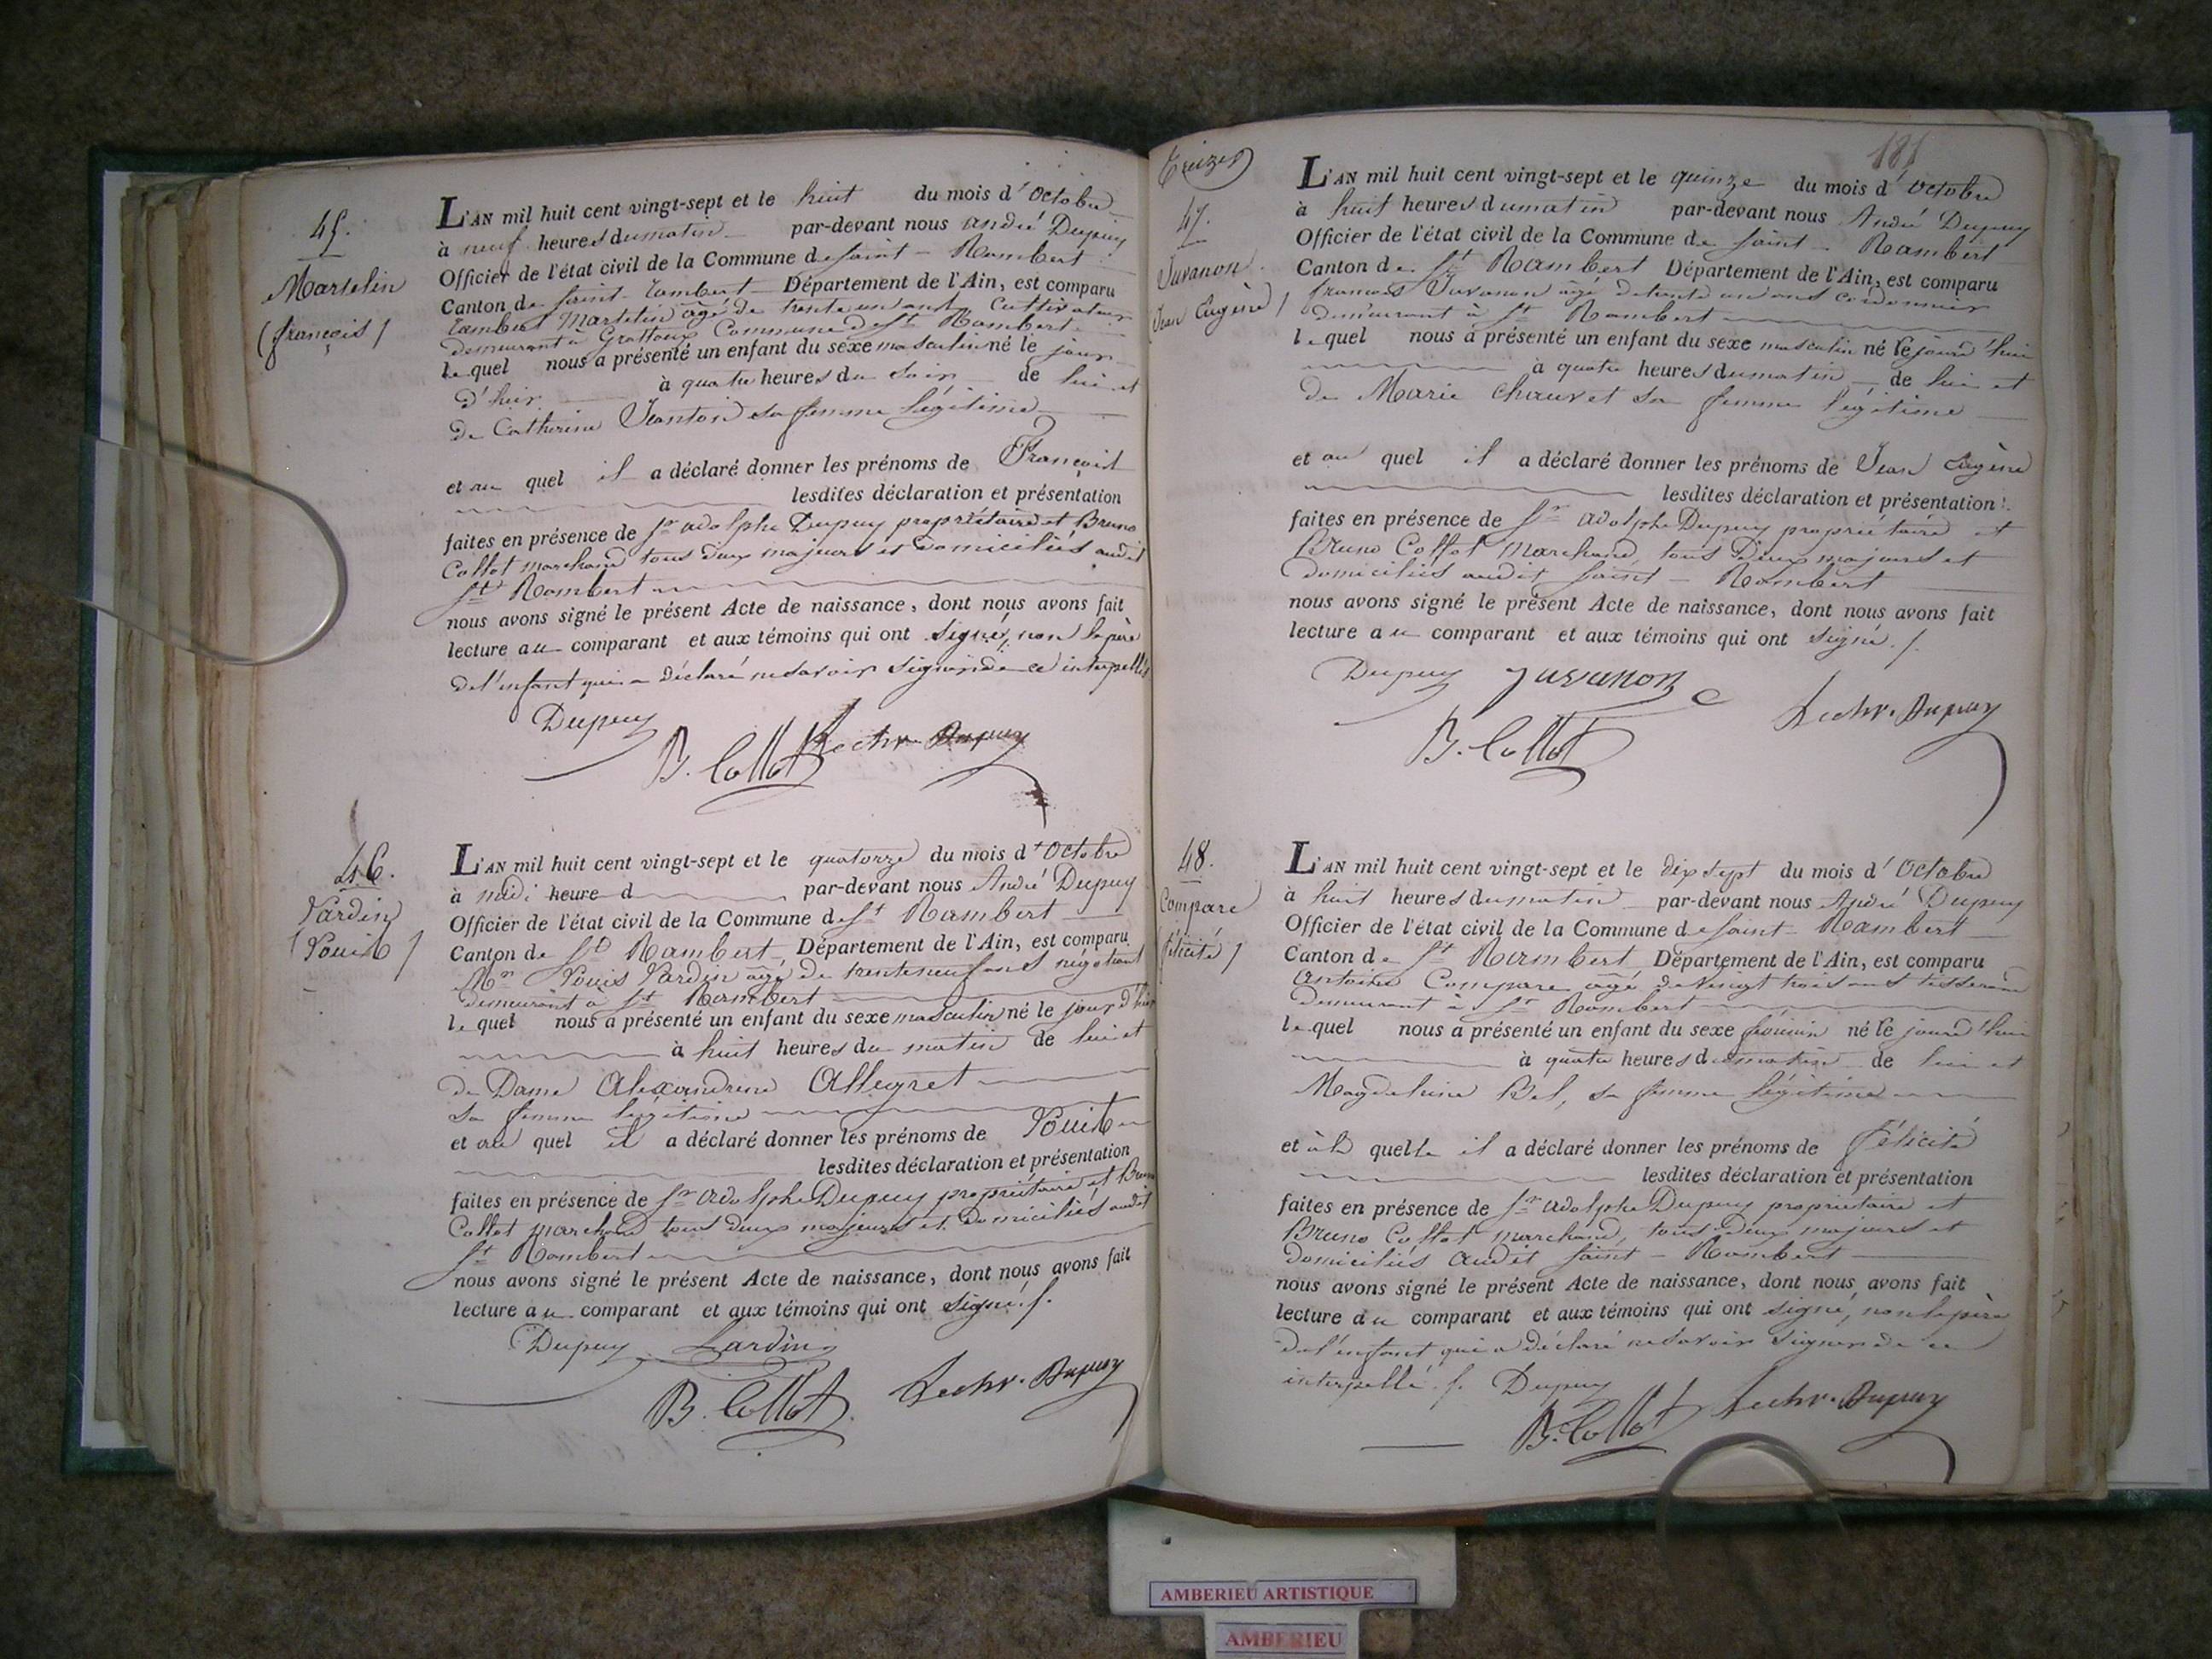 45.
Martelin
(françois)
L'AN mil huit cent vingt-sept et le huit du mois d'Octobre
à neuf heures du matin par-devant nous André Dupuy
Officier de l'état civil de la Commune de Saint-Rambert
Canton de Saint-Rambert Département de l'Ain, est comparu
Rambert Martelin âgé de trente un ans Cultivateur
demeurant à Grattoux Commune de St Rambert
lequel nous a présenté un enfant du sexe masculin né le jour
d'hier à quatre heures du soir de lui et
de Catherine Jeanton sa femme légitime
et au quel il a déclaré donner les prénoms de François
lesdites déclaration et présentation
faites en présence de Sr adolphe Dupuy propriétaire et Bruno
Collot marchand tous deux majeurs et domiciliés audit
St Rambert
nous avons signé le présent Acte de naissance, dont nous avons fait
lecture au comparant et aux témoins qui ont signé, non le père
de l'enfant qui a déclaré ne savoir signer de ce interpellé
Dupuy
B. Collot
Dupuy
46.
Lardin
(Louis)
L'AN mil huit cent vingt-sept et le quatorze du mois d'Octobre
à midi heure d par-devant nous André Dupuy
Officier de l'état civil de la Commune de St Rambert
Canton de St Rambert Département de l'Ain, est comparu
Mr Louis Lardin âgé de trente neuf ans négotiant
demeurant à St Rambert
lequel nous a présenté un enfant du sexe masculin né le jour d'hier
à huit heures du matin de lui et
de Dame Alexandrine Allegret
sa femme légitime
et au quel il a déclaré donner les prénoms de Louis
lesdites déclaration et présentation
faites en présence de Sr adolphe Dupuy propriétaire et Bruno
Collot marchand tous deux majeurs et domiciliés audit
St Rambert
nous avons signé le présent Acte de naissance, dont nous avons fait
lecture au comparant et aux témoins qui ont signé.
Dupuy Lardin
B. Collot Dupuy
Treize
181
47.
Juvanon
(Jean Eugène)
L'AN mil huit cent vingt-sept et le quinze du mois d'octobre
à huit heures du matin par-devant nous André Dupuy
Officier de l'état civil de la Commune de Saint-Rambert
Canton de St Rambert Département de l'Ain, est comparu
françois Juvanon âgé de trente un ans cordonnier
demeurant à St Rambert
lequel nous a présenté un enfant du sexe masculin né le jourd'hui
à quatre heures du matin de lui et
de Marie Chauvet sa femme légitime
et au quel il a déclaré donner les prénoms de Jean Eugène
lesdites déclaration et présentation
faites en présence de Sr adolphe Dupuy propriétaire et
Bruno Collot Marchand, tous deux majeurs et
domiciliés audit Saint-Rambert
nous avons signé le présent Acte de naissance, dont nous avons fait
lecture au comparant et aux témoins qui ont signé.
Dupuy Juvanon
B. Collot Dupuy
48.
Compare
(félicité)
L'AN mil huit cent vingt-sept et le dix sept du mois d'Octobre
à huit heures du matin par-devant nous André Dupuy
Officier de l'état civil de la Commune de Saint-Rambert
Canton de St Rambert Département de l'Ain, est comparu
Antoine Compare âgé de vingt trois ans tisserand
demeurant à St Rambert
lequel nous a présenté un enfant du sexe féminin né le jourd'hui
à quatre heures du matin de lui et
Magdeleine Bel, sa femme légitime
et à la quelle il a déclaré donner les prénoms de félicité
lesdites déclaration et présentation
faites en présence de Sr adolphe Dupuy propriétaire et
Bruno Collot marchand, tous deux majeurs et
domiciliés audit Saint-Rambert
nous avons signé le présent Acte de naissance, dont nous avons fait
lecture au comparant et aux témoins qui ont signé, non le père
de l'enfant qui a déclaré ne savoir signer de ce
interpellé. Dupuy
B. Collot Dupuy
AMBERIEU ARTISTIQUE
AMBERIEU